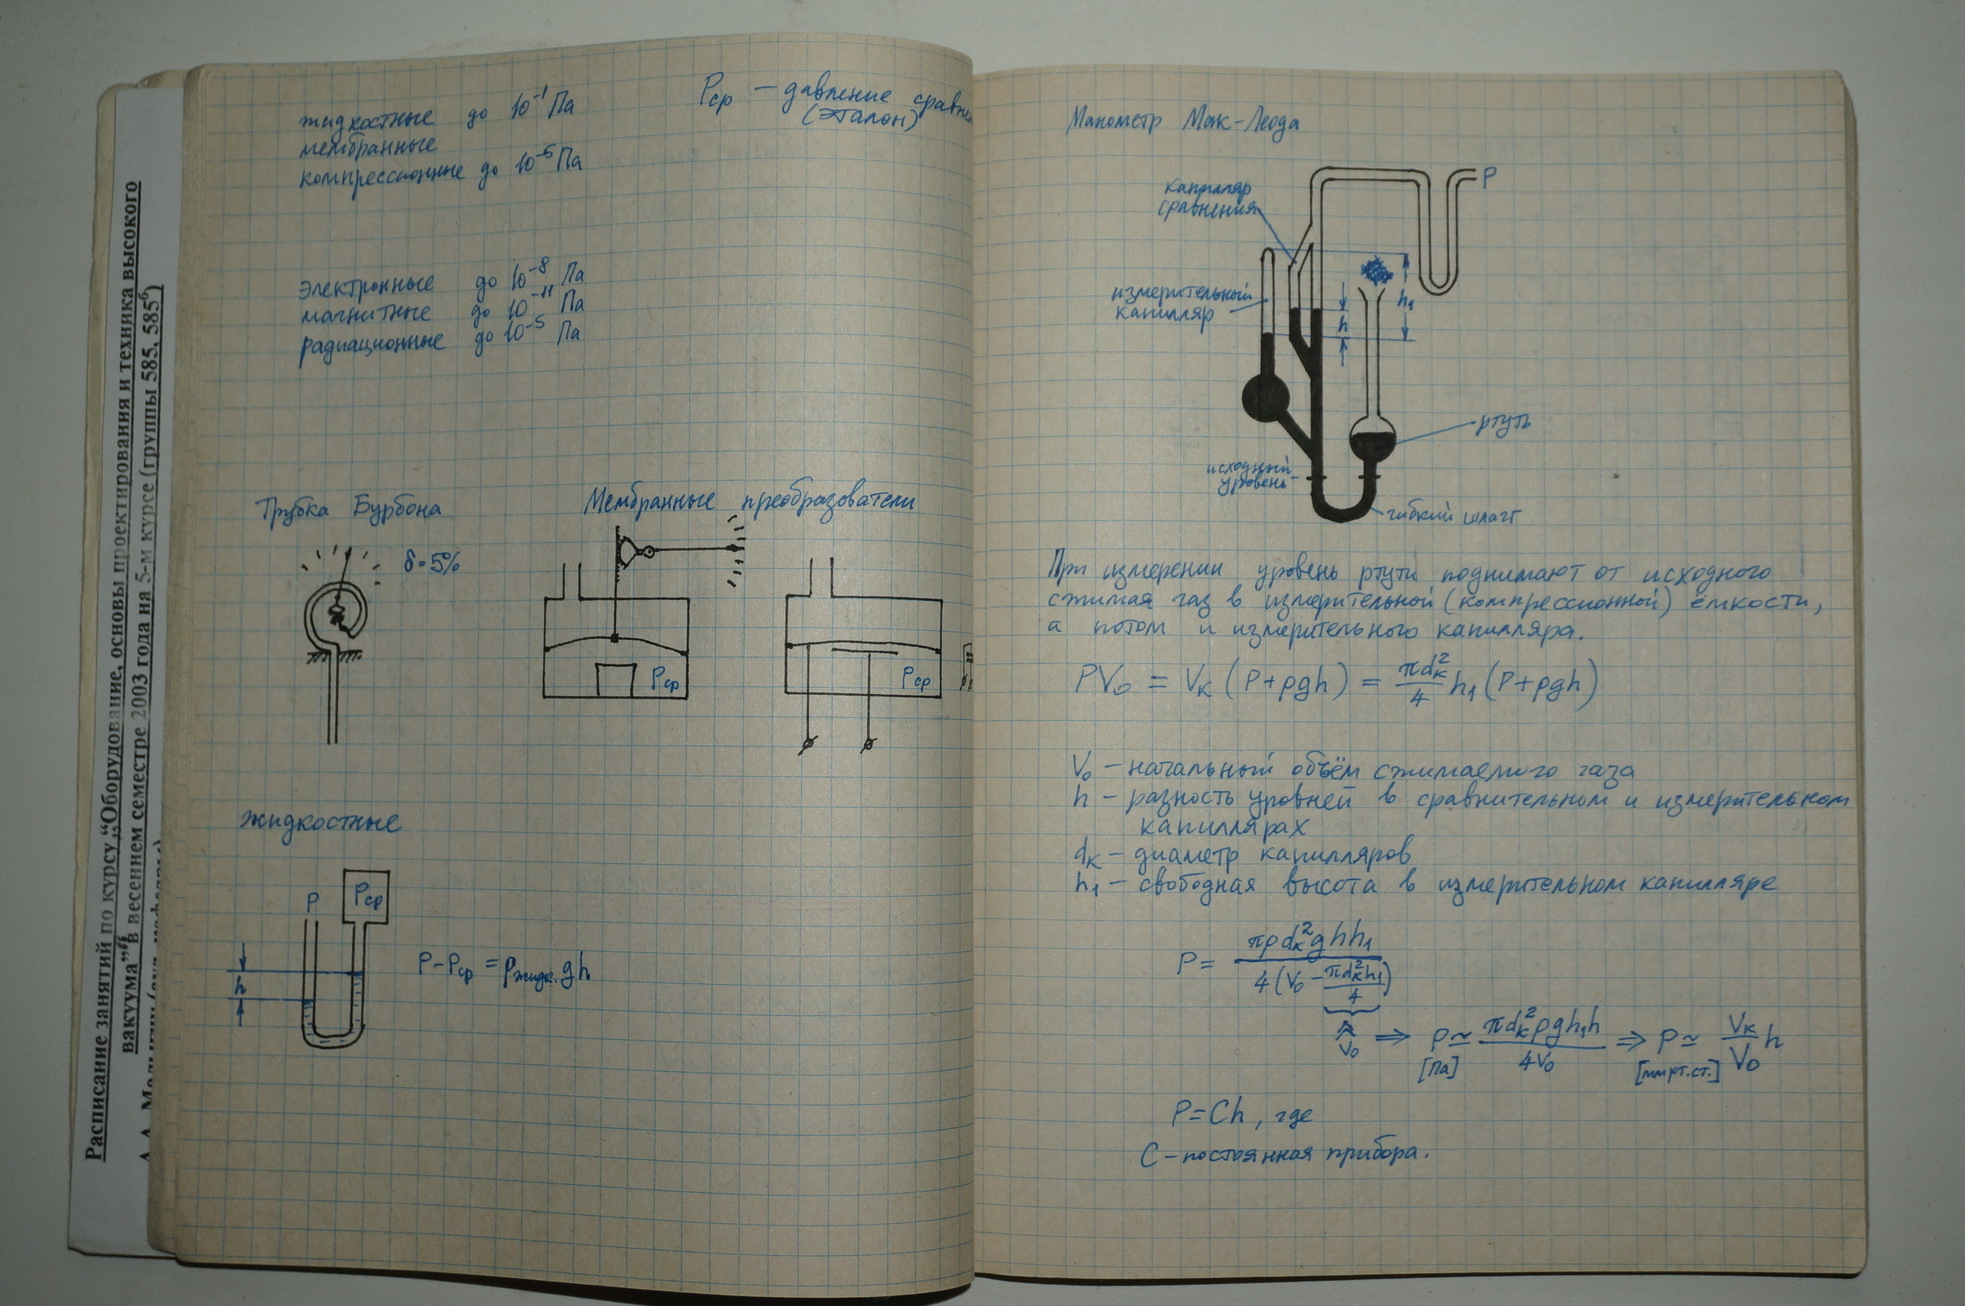 Расписание занятий по курсу „Оборудование, основы проектирования и техника высокого
вакуума“ в весеннем семестре 2003 года на 5-м курсе (группы 585, 585⁶)
жидкостные до 10⁻¹ Па
мембранные
компрессионные до 10⁻⁵ Па
Pср — давление сравне
(эталон)
электронные до 10⁻⁸ Па
магнитные до 10⁻¹¹ Па
радиационные до 10⁻⁵ Па
Трубка Бурбона
δ=5%
Мембранные преобразователи
Pср
Pср
жидкостные
P
Pср
h
P-Pср = ρжидк. gh
Манометр Мак-Леода
P
капилляр
сравнения
измерительный
капилляр
h
h₁
ртуть
исходный
уровень
гибкий шланг
При измерении уровень ртути поднимают от исходного
сжимая газ в измерительной (компрессионной) ёмкости,
а потом и измерительного капилляра.
PV₀ = Vк (P+ρgh) = πdк²/4 h₁ (P+ρgh)
V₀ — начальный объём сжимаемого газа
h — разность уровней в сравнительном и измерительном
капиллярах
dк — диаметр капилляров
h₁ — свободная высота в измерительном капилляре
P = πρdк²ghh₁ / 4(V₀ - πdк²h₁/4)
≈ V₀ ⇒ P ≃ πdк²ρgh₁h / 4V₀ ⇒ P ≃ Vк/V₀ h
[Па] [мм рт. ст.]
P=Ch, где
C — постоянная прибора.